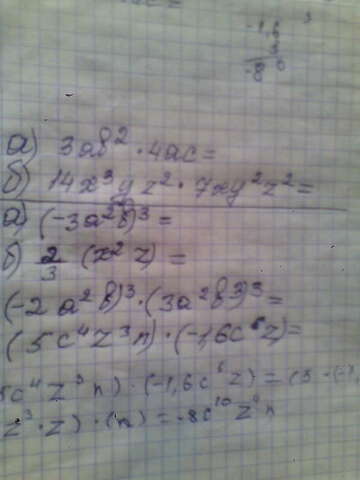 -1,6
3
-8 0
а) 3ab² · 4ac =
б) 14x³yz² · 7xy²z² =
а) (-3a²b)³ =
б) 2/3 (x² z) =
(-2a²b)³ · (3a²b³)³ =
(5c⁴z³n) · (-1,6c⁶z) =
5c⁴z³n) · (-1,6c⁶z) = (5 · (-1,
z³ · z) · (n) = -8c¹⁰z⁴n